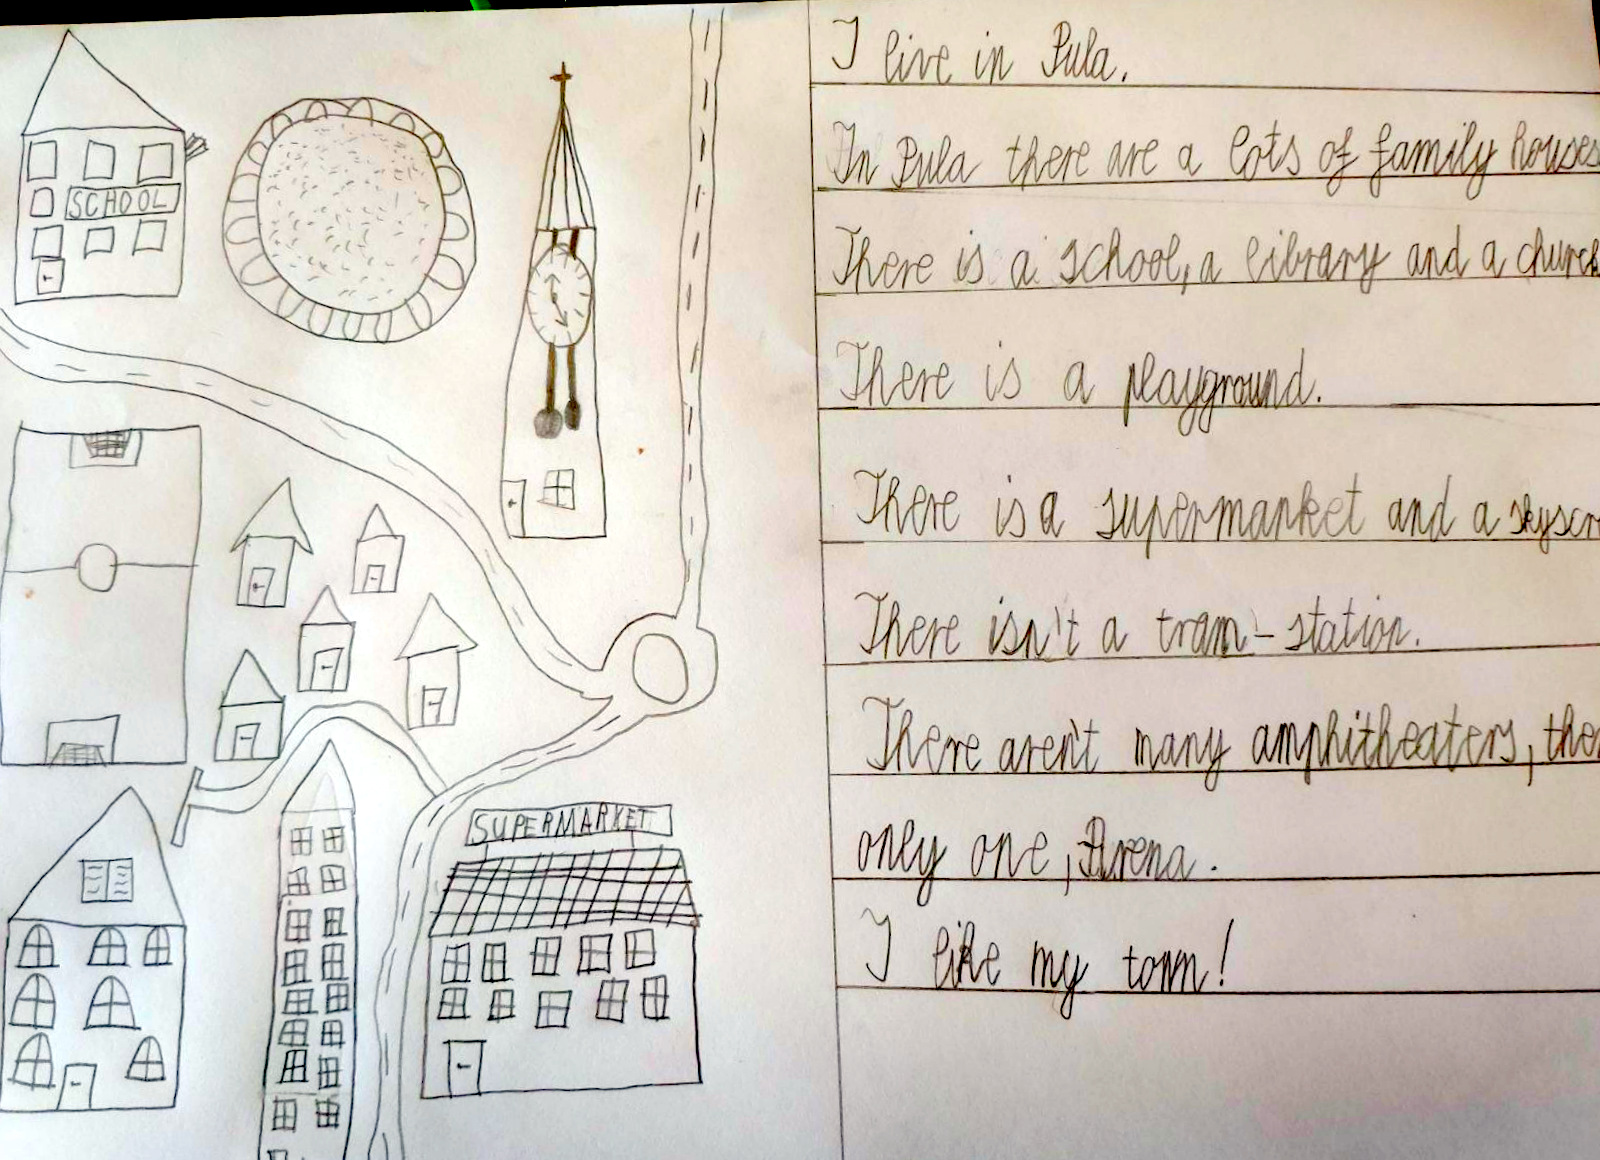 SCHOOL
SUPERMARKET
I live in Pula.
In Pula there are a lots of family houses
There is a school, a library and a church
There is a playground.
There is a supermarket and a skyscr
There isn't a tram-station.
There aren't many amphitheaters, ther
only one, Arena.
I like my town!